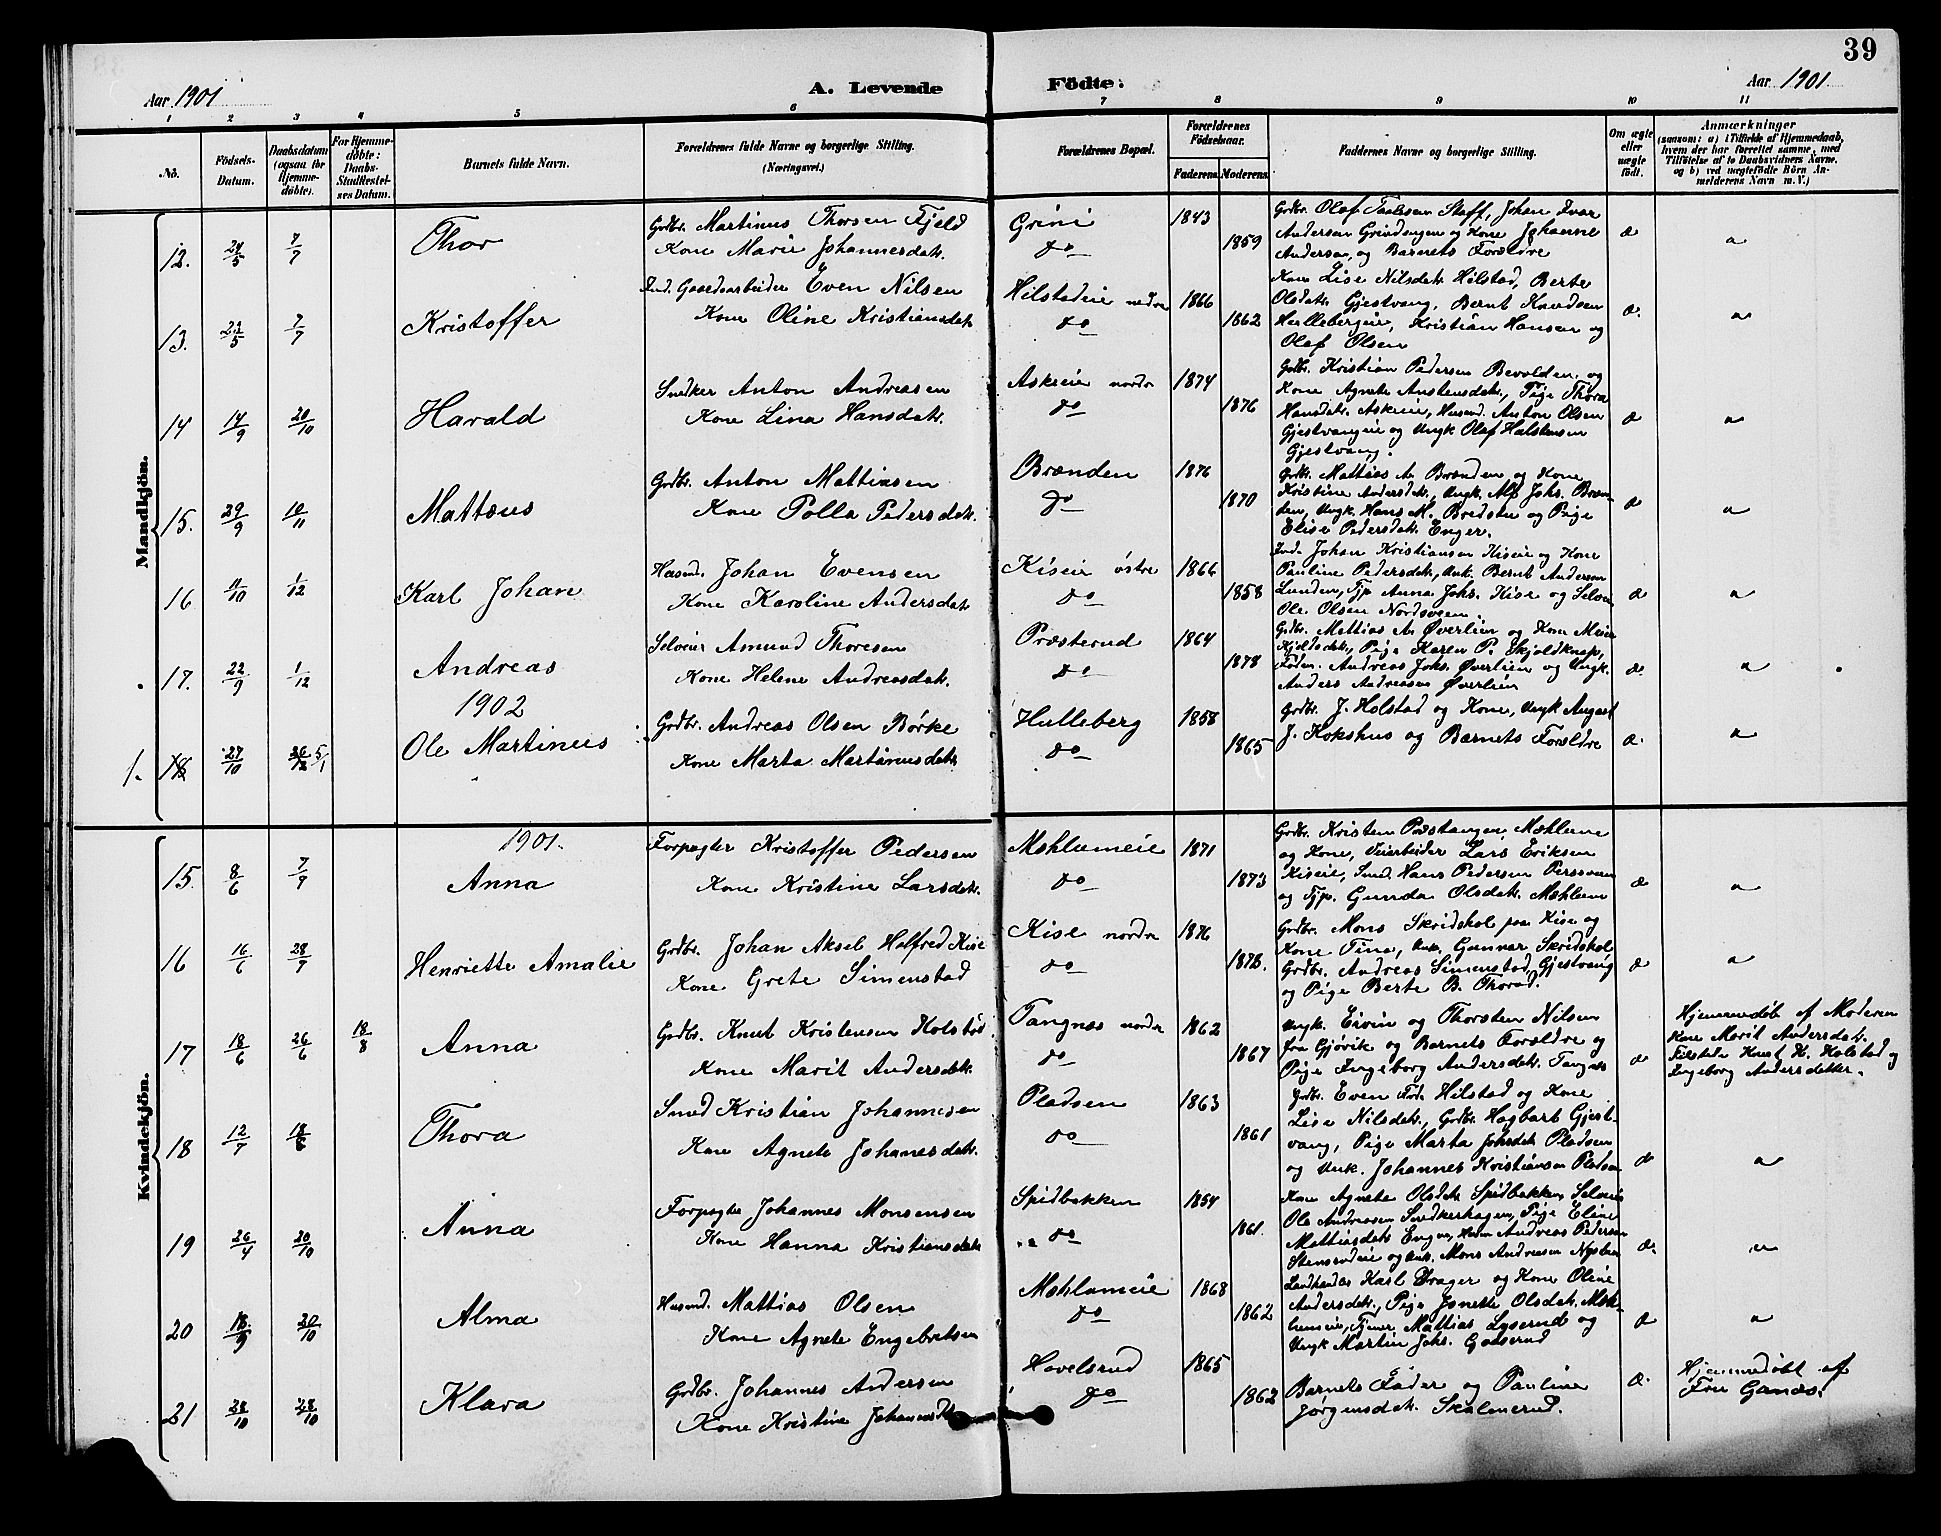 39
Aar 1901
A. Levende Födte.
Aar 1901
1 2 3 4 5 6 7 8 9 10 11
No.
Födsels-Datum.
Daabsdatum (ogsaa for Hjemme-döbte).
For Hjemme-döbte: Daabs-Stadfæstel-ses Datum.
Barnets fulde Navn.
Forældrenes fulde Navne og borgerlige Stilling. (Næringsvei.)
Forældrenes Bopæl.
Forældrenes Födselsaar.
Faderens. Moderens.
Faddernes Navne og borgerlige Stilling.
Om ægte eller uægte födt.
Anmærkninger
(saasom: a) i Tilfælde af Hjemmedaab, hvem der har forrettet samme, med Tilföielse af to Daabsvidners Navne, og b) ved uægtefödte Börn Anmelderens Navn m. V.)
Mandkjön.
12. 24/5 7/7 Thor
Grdbr. Martinus Thorsen Fjeld
Kone Marie Johannesdatr.
Grini
do
1843 1859
Grdbr. Olaf Paalssen Staff, Johan Ivar
Andersen Grindengen og Kone Johanne
Andersen, og Barnets Forældre
æ a
13. 23/5 7/7 Kristoffer
Ind. Gaardsarbeider Even Nilsen
Kone Oline Kristiansdatr
Hilstadeie nedre
do
1866 1862
Kone Lise Nilsdatr Hilstad, Berte
Olsdatr. Gjestvang, Bernt Knudsen
Hullebergeie, Kristian Hansen og
Olaf Olsen
æ. a
14 14/9 20/10 Harald
Snedker Anton Andreasen
Kone Lina Hansdatr.
Askeie nordre
do
1874 1876
Grdbr. Kristian Pedersen Bevolden, og
Kone Agnete Anstensdatr., Pige Thora
Hansdatr. Askeie, Husmd. Anton Olsen
Gjestvangeie og Ungk Olaf Halstensen
Gjestvang.
æ a
15. 29/9 10/11 Mattæus
Grdbr. Anton Mattiasen
Kone Polla Pedersdatr.
Brænden
do
1876 1870
Grdbr. Mattias A. Brænden og Kone
Kristine Andersdatr., Ungk. Alf Johs. Bræn-
den, Ungk. Hans M. Bredstu og Pige
Elise Pedersdatr. Enger.
æ a
16 11/10 1/12 Karl Johan
Husmd. Johan Evensen
Kone Karoline Andersdatr
Kiseie østre
do
1866 1858
Ind. Johan Kristiansen Kiseie og Kone
Pauline Pedersdatr, Unk. Bernt Andersen
Lunden, Tjp Anna Johs. Kise og Selveier
Ole Olsen Nordsveen.
æ a
17. 22/9 1/12 Andreas
Selveier Amund Thoresen
Kone Helene Andreasdatr.
Præsterud
do
1864 1878
Grdbr. Mattias A. Øverlien og Kone
Kjeldsdatr., Pige Karen P. Skjoldknap,
Føder. Andreas Johs. Øverlien og Ungk.
Anders Andreasen Øverlien
æ. a
1902
1. 18 27/10 26/12 5/1 Ole Martinius
Grdbr. Andreas Olsen Børke
Kone Marta Martinusdatr
Hulleberg
do
1858 1865
Grdbr. J. Holstad og Kone, Ungk August
J. Kokshus og Barnets Forældre
æ. a
Kvindekjön.
1901.
15. 8/6 7/9 Anna
Forpagter Kristoffer Pedersen
Kone Kristine Larsdatr.
Mæhlumeie
do
1871 1873
Grdbr. Kristen Præstangen, Mæhlum
og Kone, Veiarbeider Lars Eriksen
Kiseie, Smd. Hans Pedersen Perssveen
og Tjp. Gunda Olsdatr. Mæhlum
æ a
16 16/6 28/9 Henriette Amalie
Grdbr. Johan Aksel Halfred Kise
Kone Grete Simenstad
Kise nordre
do
1876 1873.
Grdbr. Mons Skridshol paa Kise og
Kone Tina, Unk. Gunnar Skridshol
Grdbr. Andreas Simenstad, Gjestvang
og Pige Berte B. Thorud.
æ a
17 18/6 26/6 18/8 Anna
Grdbr. Knut Kristensen Holstad
Kone Marit Andersdatr.
Tangnes nordre
do
1862 1867
Ungk. Eivin og Thorsten Nilsen
fra Gjøvik og Barnets Forældre og
Pige Ingeborg Andersdatr. Tangnes
æ
Hjemmedøb af Moderen
Kone Marit Andersdatr.
Tilstede Knut K. Holstad og
Ingeborg Andersdatter.
18 12/7 18/8 Thora
Smed Kristian Johannesen
Kone Agnete Johanesdatr.
Pladsen
do
1863 1861
Grdbr. Even Fred. Hilstad og Kone
Lise Nilsdatr., Grdbr. Hagbart Gjest-
vang, Pige Marta Johsdatr. Pladsen
og Unk. Johannes Kristiansen Pladsen
æ a
19 26/4 20/10 Anna
Forpagter Johannes Monsensen
Kone Hanna Kristiansdatr
Spidbakken
do
1854 1861.
Kone Agnete Olsdatr Spidbakken, Selveier
Ole Andreasen Snedkerhagen, Pige Eline
Mattiasdatr Engen, Husm Andreas Pedersen
Stensrudeie og Unk. Mons Andreasen
æ. a
20 18/9 20/10 Alma
Husmd. Mattias Olsen
Kone Agnete Engebretsen
Mæhlumeie
do
1868 1862
Landhandler Karl Prager og Kone Oline
Andersdatr., Pige Jonette Olsdatr. Mæh-
lumeie, Tjener Mattias Lyserud og
Ungk Martin Johs. Galserud
æ a
21 28/10 28/10 Klara
Grdbr. Johannes Andersen
Kone Kristine Johannesdtr
Hovelsrud
do
1865 1862
Barnets Fader og Pauline
Jørgensdatr. Skalmerud.
æ.
Hjemmedøbt af
Fru Gands.